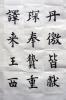 丹徼皆獻
琛奉贄重
譯來王西